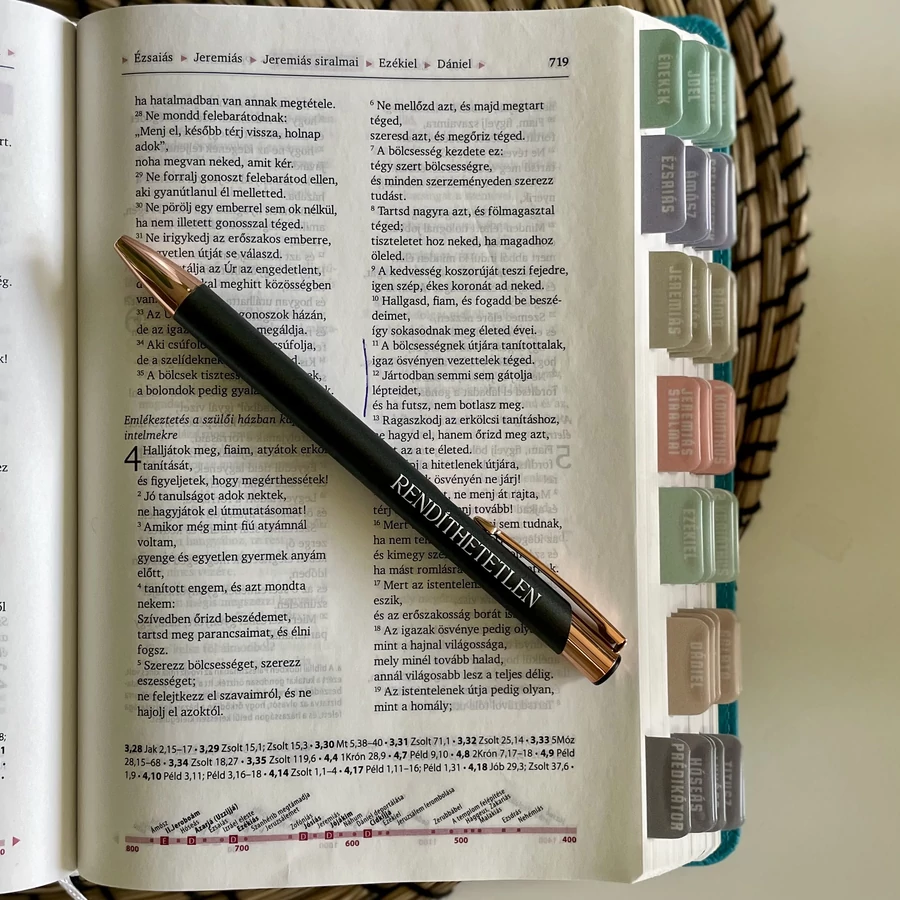 Ézsaiás ▸ Jeremiás ▸ Jeremiás siralmai ▸ Ezékiel ▸ Dániel ▸ 719
ha hatalmadban van annak megtétele.
28 Ne mondd felebarátodnak:
„Menj el, később térj vissza, holnap
adok”,
noha megvan neked, amit kér.
29 Ne forralj gonoszt felebarátod ellen,
aki gyanútlanul él melletted.
30 Ne pörölj egy emberrel sem ok nélkül,
ha nem illetett gonosszal téged.
31 Ne irigykedj az erőszakos emberre,
egyetlen útját se válaszd.
tálja az Úr az engedetlent,
kal meghitt közösségben
van
33 Az Ú gonoszok házán,
de az iga megáldja.
34 Aki csúfol csúfolja,
de a szelídeknek
35 A bölcsek tisztess ek,
a bolondok pedig gyal
Emlékeztetés a szülői házban
intelmekre
4 Halljátok meg, fiaim, atyátok
tanítását,
és figyeljetek, hogy megérthessétek!
2 Jó tanulságot adok nektek,
ne hagyjátok el útmutatásomat!
3 Amikor még mint fiú atyámnál
voltam,
gyenge és egyetlen gyermek anyám
előtt,
4 tanított engem, és azt mondta
nekem:
Szívedben őrizd beszédemet,
tartsd meg parancsaimat, és élni
fogsz.
5 Szerezz bölcsességet, szerezz
eszességet;
ne felejtkezz el szavaimról, és ne
hajolj el azoktól.
6 Ne mellőzd azt, és majd megtart
téged,
szeresd azt, és megőriz téged.
7 A bölcsesség kezdete ez:
tégy szert bölcsességre,
és minden szerzeményeden szerezz
tudást.
8 Tartsd nagyra azt, és fölmagasztal
téged;
tiszteletet hoz neked, ha magadhoz
öleled.
9 A kedvesség koszorúját teszi fejedre,
igen szép, ékes koronát ad neked.
10 Hallgasd, fiam, és fogadd be beszé-
deimet,
így sokasodnak meg életed évei.
11 A bölcsességnek útjára tanítottalak,
igaz ösvényen vezettelek téged.
12 Jártodban semmi sem gátolja
lépteidet,
és ha futsz, nem botlasz meg.
13 Ragaszkodj az erkölcsi tanításhoz,
ne hagyd el, hanem őrizd meg azt,
az a te életed.
a hitetlenek útjára,
ösvényén ne járj!
ne menj át rajta,
térj tovább!
16 Mert sem tudnak,
ha nem
és kimegy
ha mást romlásra
17 Mert az istentelen
eszik,
és az erőszakosság borát
18 Az igazak ösvénye pedig
mint a hajnal világossága,
mely minél tovább halad,
annál világosabb lesz a teljes délig.
19 Az istentelenek útja pedig olyan,
mint a homály;
RENDÍTHETETLEN
3,28 Jak 2,15–17 • 3,29 Zsolt 15,1; Zsolt 15,3 • 3,30 Mt 5,38–40 • 3,31 Zsolt 71,1 • 3,32 Zsolt 25,14 • 3,33 5Móz
28,15–68 • 3,34 Zsolt 18,27 • 3,35 Zsolt 119,6 • 4,4 1Krón 28,9 • 4,7 Péld 9,10 • 4,8 2Krón 7,17–18 • 4,9 Péld
1,9 • 4,10 Péld 3,11; Péld 3,16–18 • 4,14 Zsolt 1,1–4 • 4,17 Péld 1,11–16; Péld 1,31 • 4,18 Jób 29,3; Zsolt 37,6 •
Ámósz
II. Jeroboám
Hóseás
Azarjá (Uzzijjá)
Ézsaiás
Izráel eleste
Ezékiás
Szanhérib megtámadja
Jeruzsálemet
Zofóniás
Jósiás
Jeremiás
Jójákim
Náhum
Dániel deportálása
Cidkijjá
Ezékiel
Jeruzsálem lerombolása
Zerubbábel
A templom felépítése
Haggeus, Zakariás
Malakiás
Ezsdrás
Nehémiás
800 700 600 500 400
ÉNEKEK
JÓEL
ÉZSAIÁS
ÁMÓSZ
JEREMIÁS
RÓMA
JEREMIÁS
SIRALMAI
1 KORINTUS
EZÉKIEL
DÁNIEL
PRÉDIKÁTOR
HÓSEÁS
TITUSZ